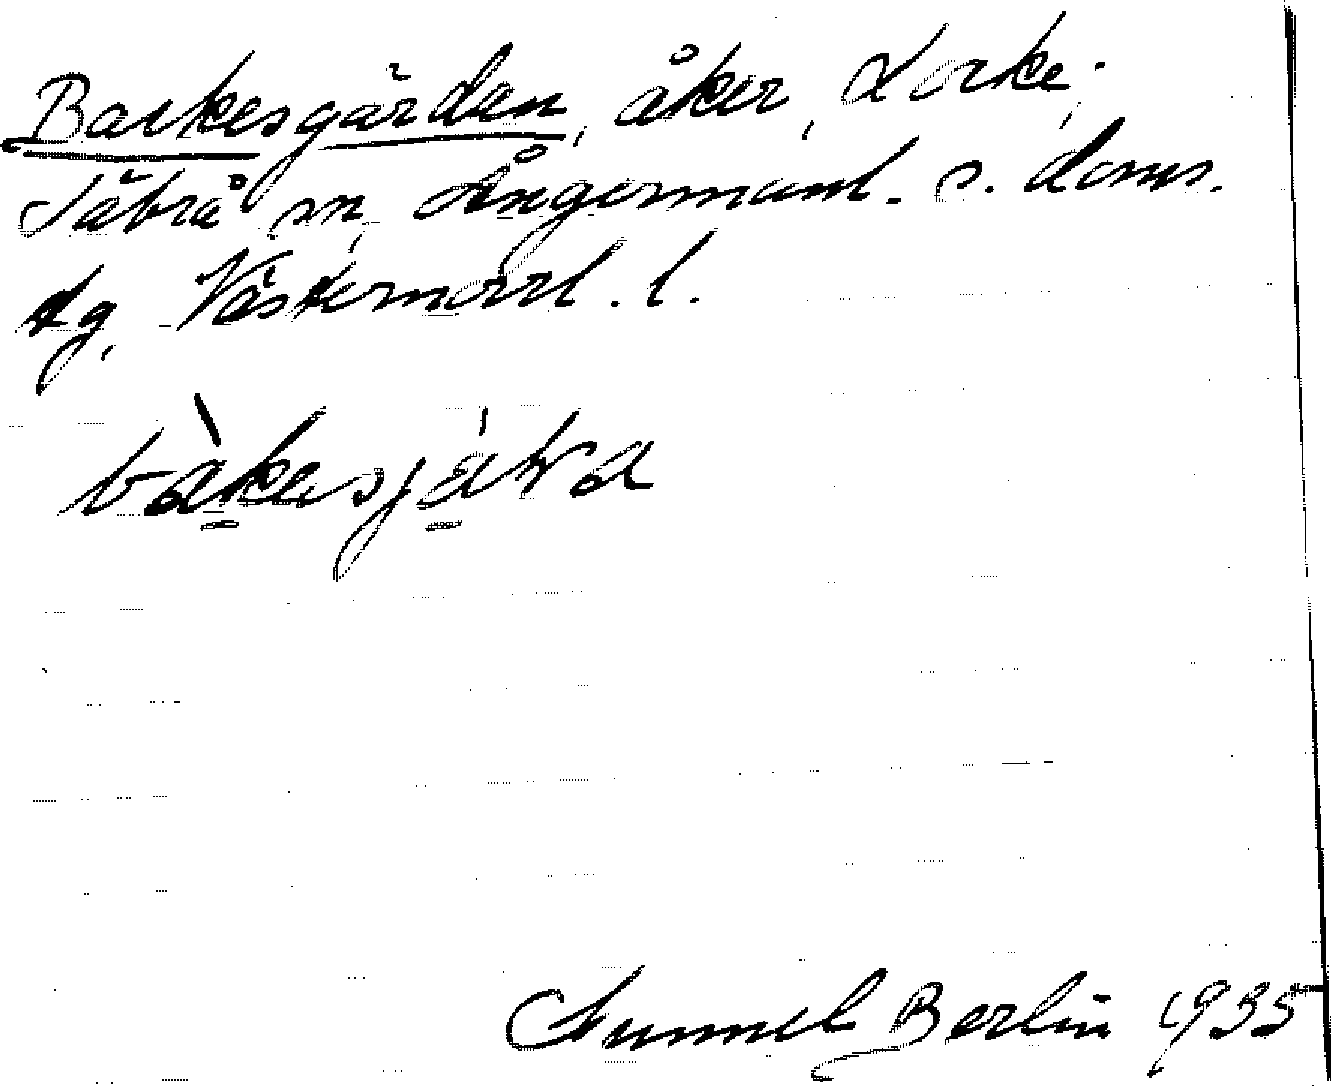 Backesgärden, åker, Lörke,
Säbrå sn, Ångermanl. s. doms.
dg, Västernorrl. l.
bàkesjáka
Gunnel Berlin 1935